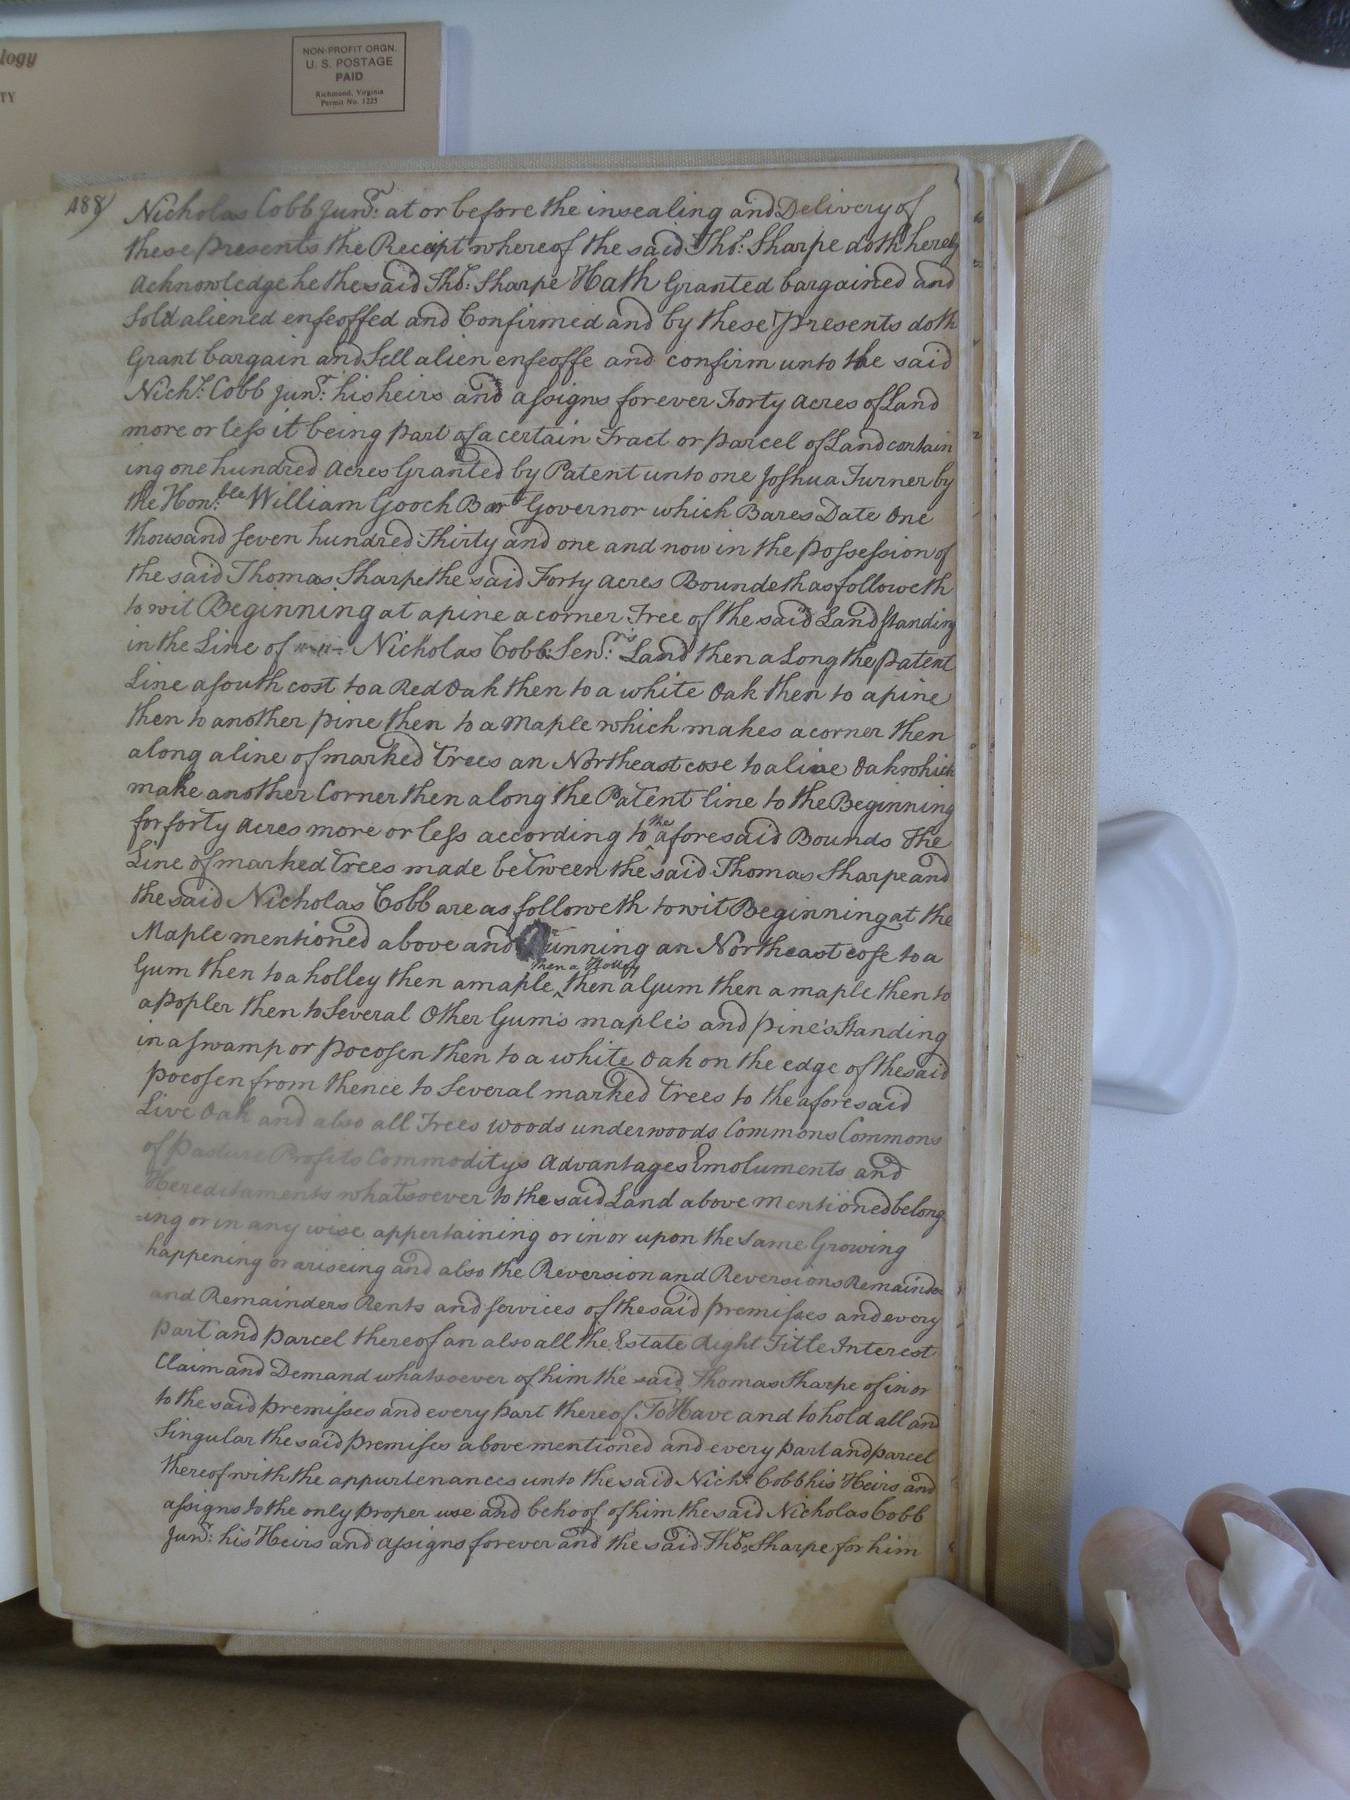 logy
TY
NON-PROFIT ORGN.
U. S. POSTAGE
PAID
Richmond, Virginia
Permit No. 1225
488)
Nicholas Cobb Junr: at or before the insealing and Delivery of
these presents the Receipt whereof the said Tho: Sharpe doth hereby
Acknowledge he the said Tho: Sharpe Hath Granted bargained and
Sold aliened enfeoffed and Confirmed and by these Presents doth
Grant bargain and Sell alien enfeoffe and confirm unto the said
Nichs: Cobb Junr: his heirs and assigns forever Forty Acres of Land
more or less it being part of a certain Tract or parcel of Land contain
ing one hundred Acres Granted by Patent unto one Joshua Turner by
the Honble: William Gooch Bart Governor which Bares Date One
thousand seven hundred Thirty and one and now in the possession of
the said Thomas Sharpe the said Forty Acres Boundeth as followeth
to wit Beginning at a pine a corner Tree of the said Land standing
in the Line of Nicholas Cobb Senr's: Land then a Long the patent
Line a south cost to a Red Oak then to a white Oak then to a pine
then to another pine then to a Maple which makes a corner then
along a line of marked Trees an Northeast cose to a live Oak which
make another Corner then along the Patent line to the Beginning
for forty Acres more or less according to the aforesaid Bounds The
Line of marked Trees made between the said Thomas Sharpe and
the said Nicholas Cobb are as followeth to wit Beginning at the
Maple mentioned above and Running an Northeast cose to a
Gum then to a holley then a maple then a Holley then a Gum then a maple then to
a popler then to Several Other Gum's maple's and pine's Standing
in a swamp or pocosen then to a white Oak on the edge of the said
pocosen from thence to Several marked Trees to the aforesaid
Live Oak and also all Trees woods underwoods Commons Commons
of Pasture Profits Commoditys Advantages Emoluments and
Hereditaments whatsoever to the said Land above mentioned belong
=ing or in any wise appertaining or in or upon the same Growing
happening or ariseing and also the Reversion and Reversions Remainder
and Remainders Rents and services of the said premisses and every
part and parcel thereof an also all the Estate Right Title Interest
Claim and Demand whatsoever of him the said Thomas Sharpe of in or
to the said premisses and every part thereof To Have and to hold all and
Singular the said premises above mentioned and every part and parcel
thereof with the appurtenances unto the said Nichs: Cobb his Heirs and
assigns to the only proper use and behoof of him the said Nicholas Cobb
Junr: his Heirs and assigns forever and the said Tho: Sharpe for him